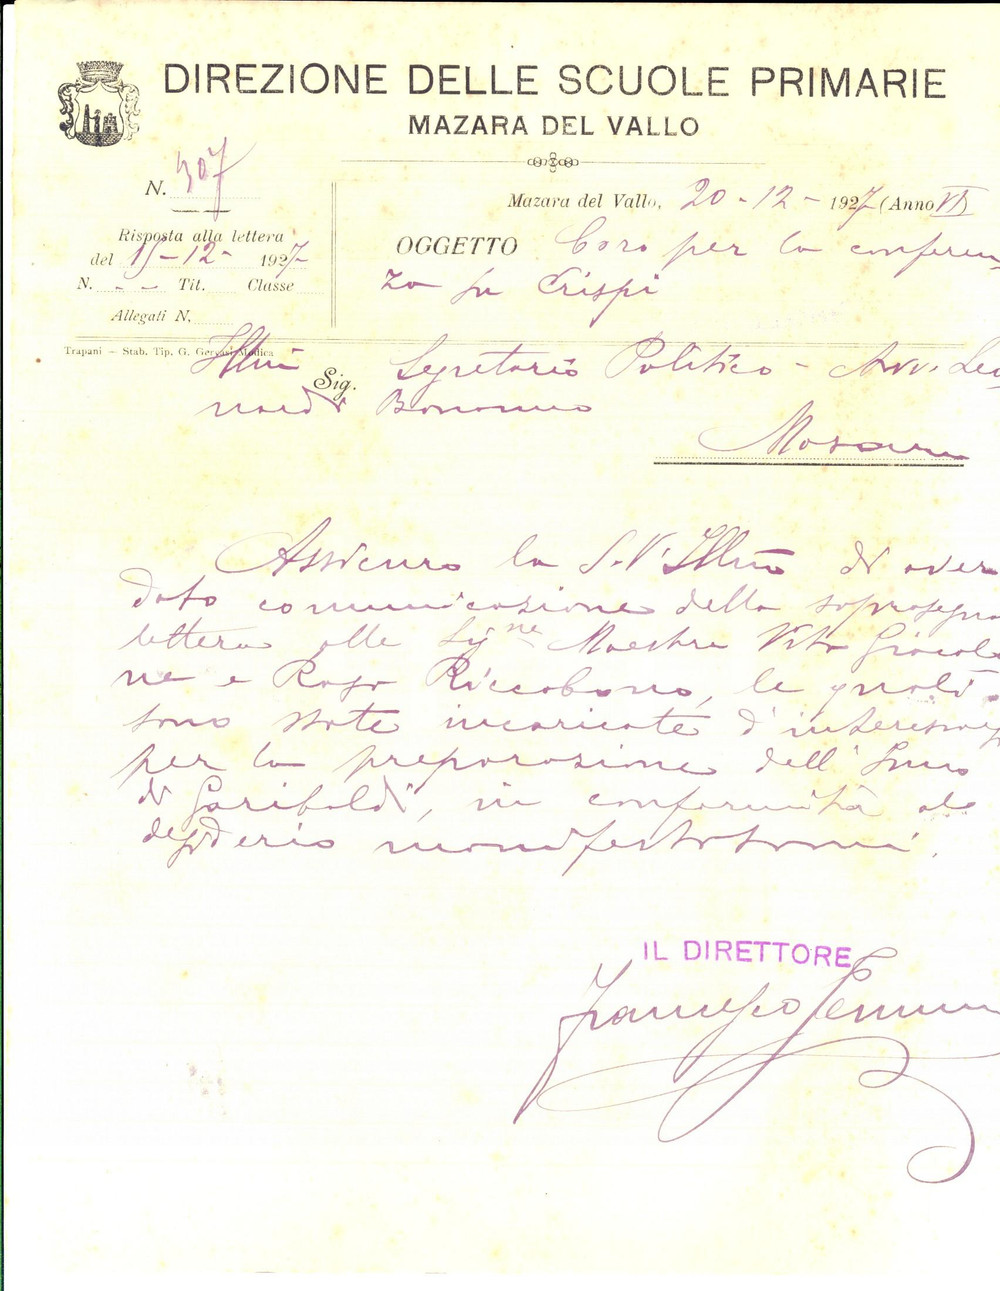 DIREZIONE DELLE SCUOLE PRIMARIE
MAZARA DEL VALLO
N. 307
Mazara del Vallo, 20-12-1927 (Anno VI)
Risposta alla lettera
del 15-12-1927
N. - - Tit. Classe
Allegati N.
OGGETTO Coro per la conferen
za su Crispi
Trapani — Stab. Tip. G. Gervasi Modica
Illmi Sig. Segretario Politico - Avv. Leo
nardi Bonanno
Mazara
Assicuro la S.V. Illma di aver
dato comunicazione della soprasegna
lettera alle Signe Maestre Vita Giacalo
ne e Rosa Riccobono, le quali
sono state incaricate d'interessa
per la preparazione dell'Inno
di Garibaldi, in conformità al
desiderio manifestatomi.
IL DIRETTORE
Francesco